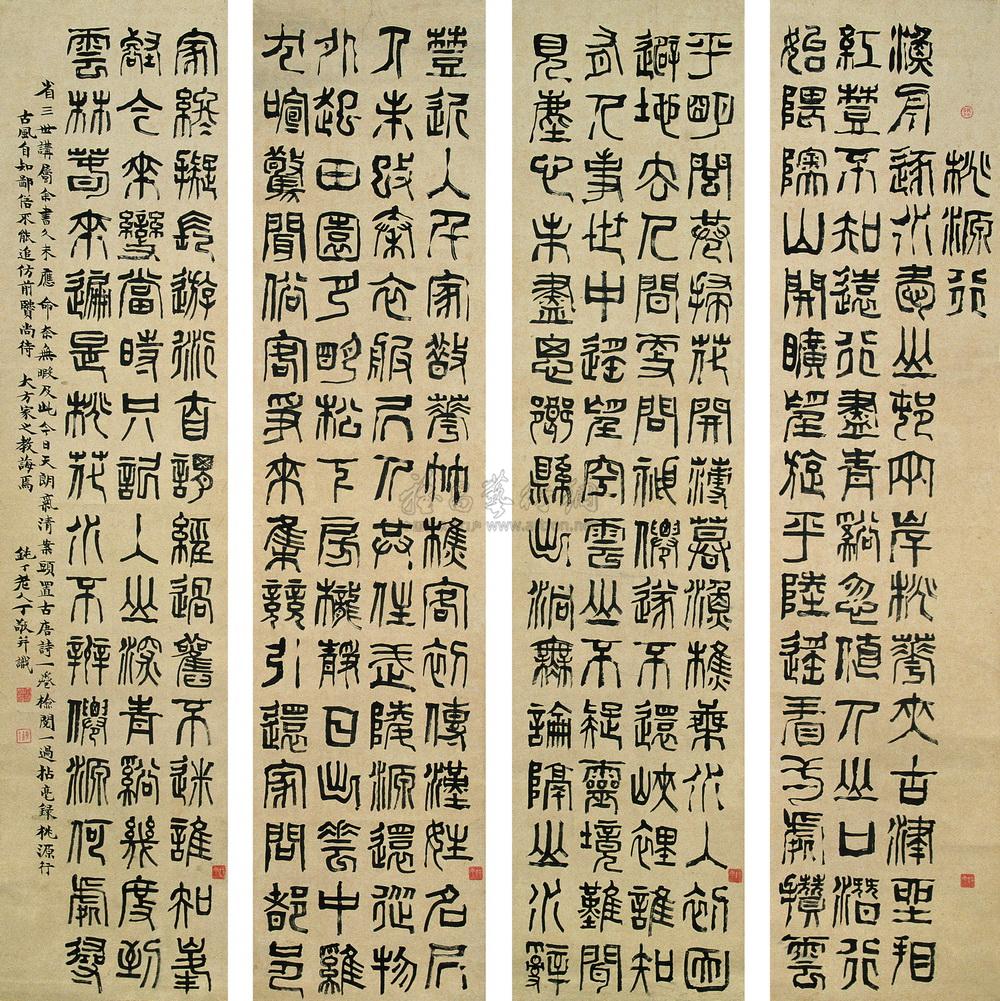 桃源行
漁舟逐水愛山邨兩岸桃華夾古津坐看
紅樹不知遠行盡青谿忽值人山口潛行
始隈隩山開曠望旋平陸遙看一處攢雲
平明閭巷掃花開薄暮漁樵乘水入初因
避地去人間更問神僊遂不還峽裡誰知
有人事世中遙望空雲山不疑靈境難聞
見塵心未盡思鄉縣出洞無論隔山水辭
樹近入千家散華竹樵客初傳漢姓名居
人未改秦衣服居人共住武陵源還從物
外起田園月明松下房櫳靜日出雲中雞
犬喧驚聞俗客爭來集競引還家問都邑
家終擬長遊衍自謂經過舊不迷誰知峯
壑今來變當時只記入山深青谿幾度到
雲林春來遍是桃花水不辨僊源何處尋
省三世講屬余書久未應命奈無暇及此今日天朗氣清案頭置古唐詩一卷檢閱一過拈毫錄桃源行
古風自知鄙俗不能追仿前賢尚待大方家之教誨焉 鈍丁老人丁敬并識